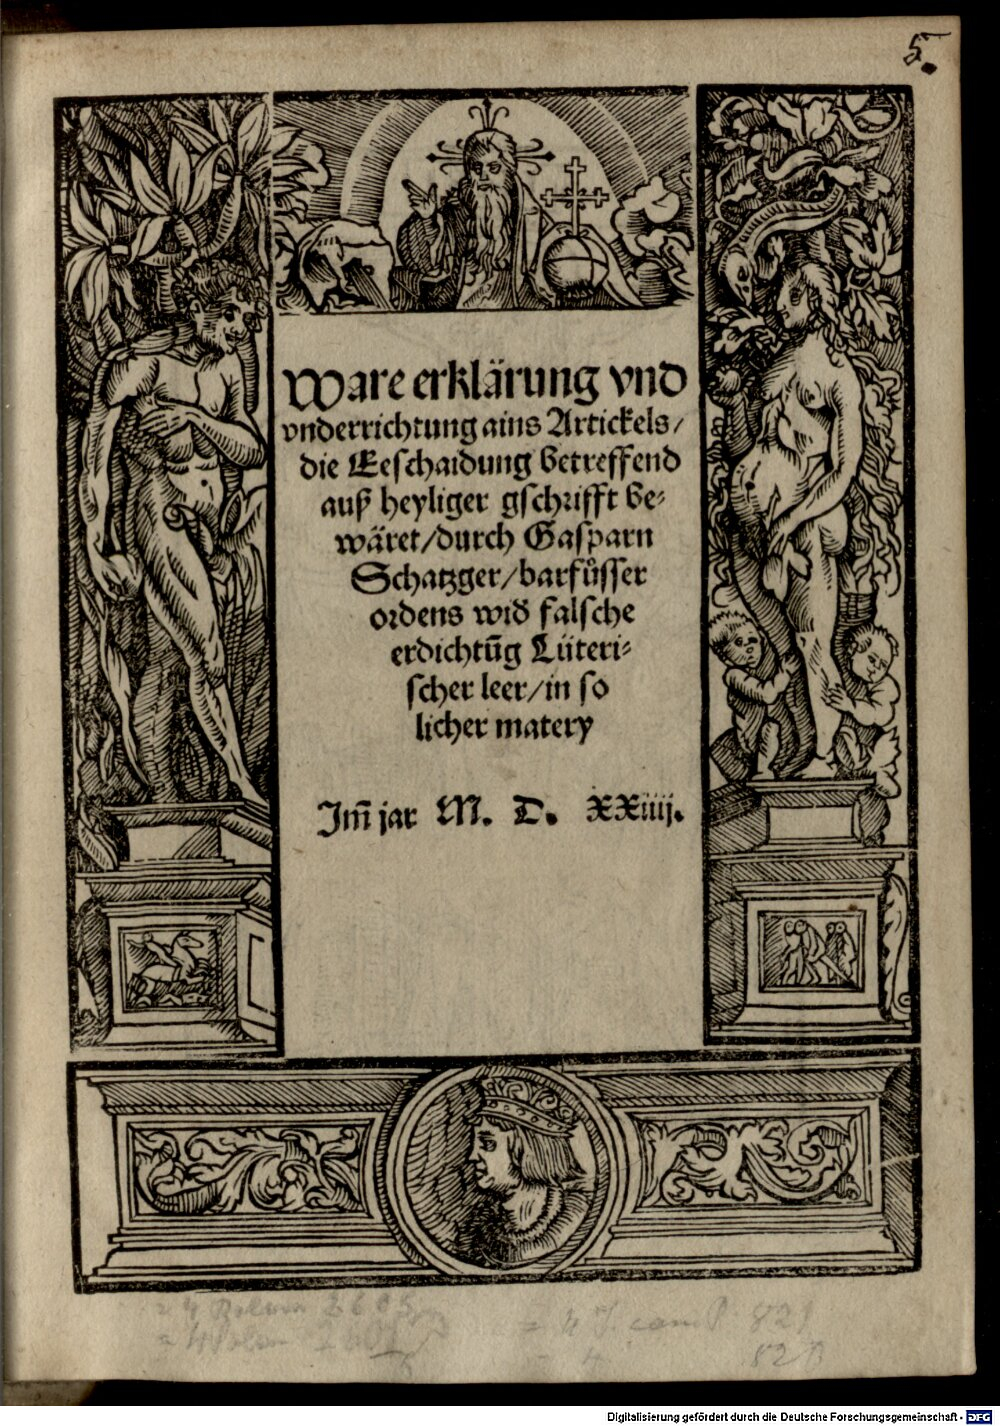 5.
Ware erklärung vnd
vnderrichtung ains Artickels/
die Eeschaidung betreffend
auß heyliger gschrifft be⸗
wäret/durch Gasparn
Schatzger/barfůsser
ordens wid᷑ falsche
erdichtūg Lüteri⸗
scher leer/in so
licher matery
Im̄ jar M. D. XXiiij.
= 4
= 4
821
Digitalisierung gefördert durch die Deutsche Forschungsgemeinschaft - DFG